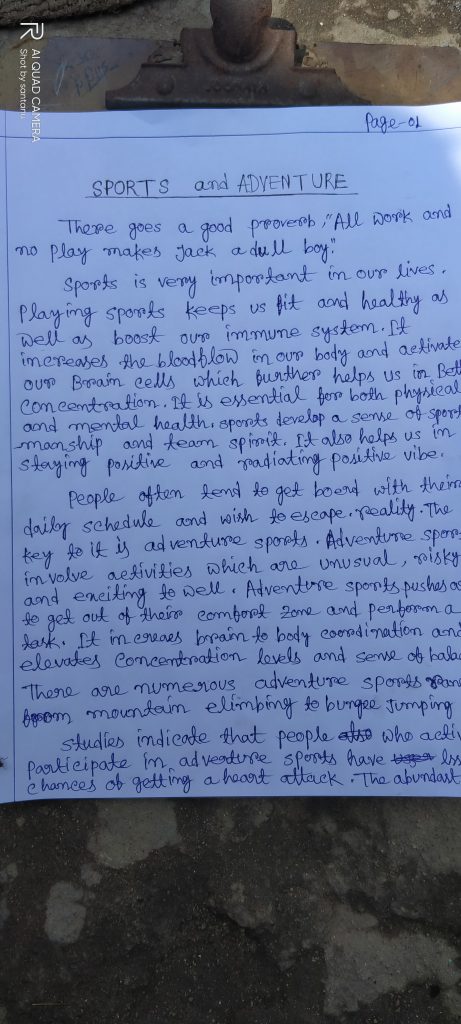 AI QUAD CAMERA
Shot by santanu
Page-01
SPORTS and ADVENTURE
There goes a good proverb, "All work and
no Play makes Jack a dull boy."
Sports is very important in our lives.
Playing sports keeps us fit and healthy as
well as boost our immune system. It
increases the bloodflow in our body and activate
our Brain cells which further helps us in Bett
concentration. It is essential for both physical
and mental health. sports develop a sense of sport
-manship and team spirit. It also helps us in
staying positive and radiating positive vibe.
People often tend to get boerd with their
daily schedule and wish to escape reality. The
key to it is adventure sports. Adventure spor
involve activities which are unusual, risky
and exciting to well. Adventure sports pushes
to get out of their comfort zone and perform a
task. It increaes brain to body coordination and
elevates concentration levels and sense of bala
There are numerous adventure sports
from mountain climbing to bungee jumping
studies indicate that people who activ
participate in adventure sports have lss
chances of getting a heart attack. The abundant